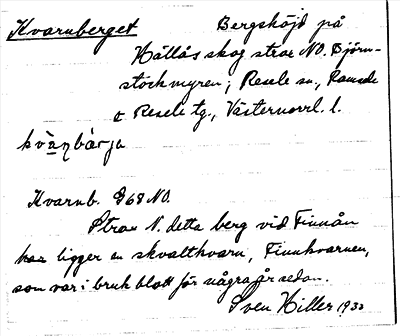 Kvarnberget Bergshöjd på
Hällås skog strax NO. Björn-
stockmyren; Resele sn, Ramsele
o Resele tg., Västernorrl. l.
kvàṇbárja
Kvarnb. 968 NO.
Strax N. detta berg vid Finnån
ligger en skvaltkvarn, Finnkvarnen,
som var i bruk blott för några år sedan.
Sven Hiller 193